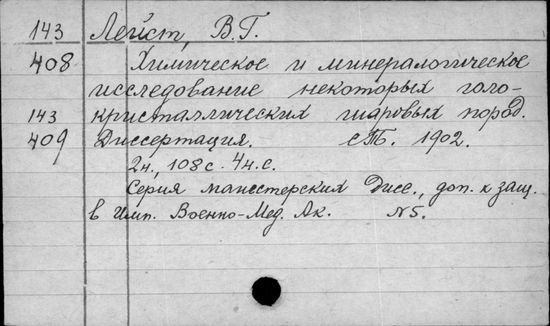 143 Лейст, В.Г.
408 Химическое и минералогическое
исследование некоторых голо-
143 кристаллических шаровых пород.
409 Диссертация. СПб. 1902.
2н., 108с. 4н.с.
Серия магистерских Дисс., доп. к защ.
в Имп. Военно-Мед. Ак. N5.